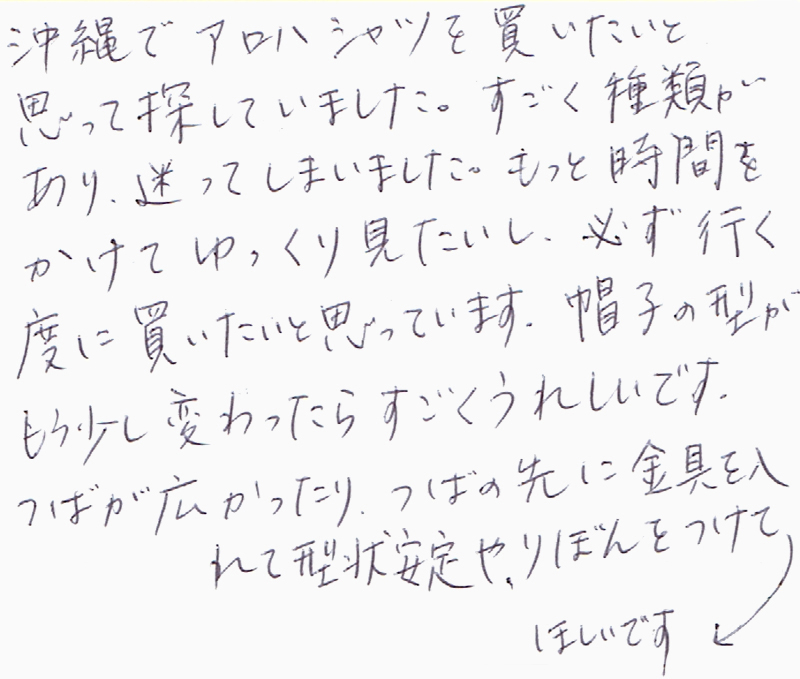 沖縄でアロハシャツを買いたいと
思って探していました。すごく種類が
あり、迷ってしまいました。もっと時間を
かけてゆっくり見たいし、必ず行く
度に買いたいと思っています。帽子の型が
もう少し変わったらすごくうれしいです。
つばが広かったり、つばの先に金具を入
れて型状安定や、りぼんをつけて
ほしいです